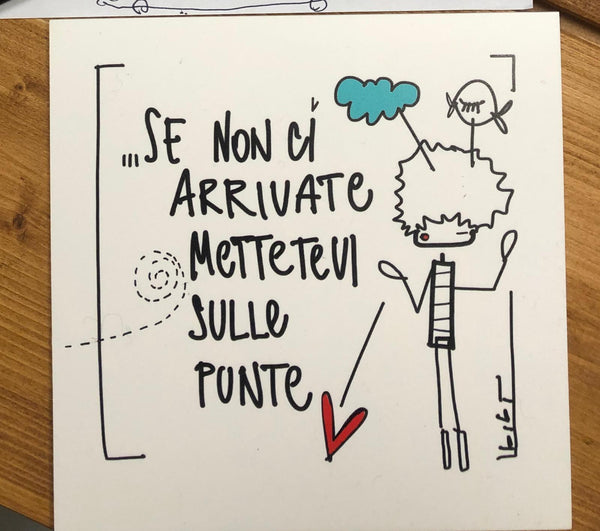 ...SE NON CÍ
ARRIVATE
METTETEVI
SULLE
PUNTE